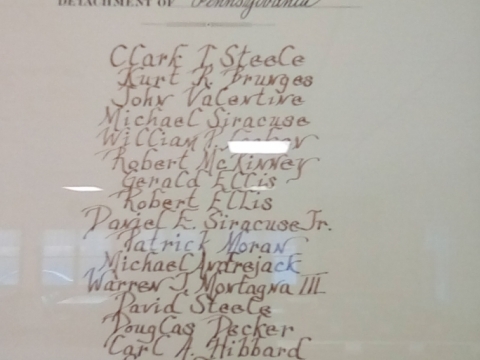 DETACHMENT OF Pennsylvania
Clark T. Steele
Kurt R. Brunges
John Valentine
Michael Siracuse
William
Robert McKinney
Gerald Ellis
Robert Ellis
Daniel E. Siracuse Jr.
Patrick Moran
Michael Andrejack
Warren J. Montagna III
David Steele
Douglas Decker
Carl A. Hibbard